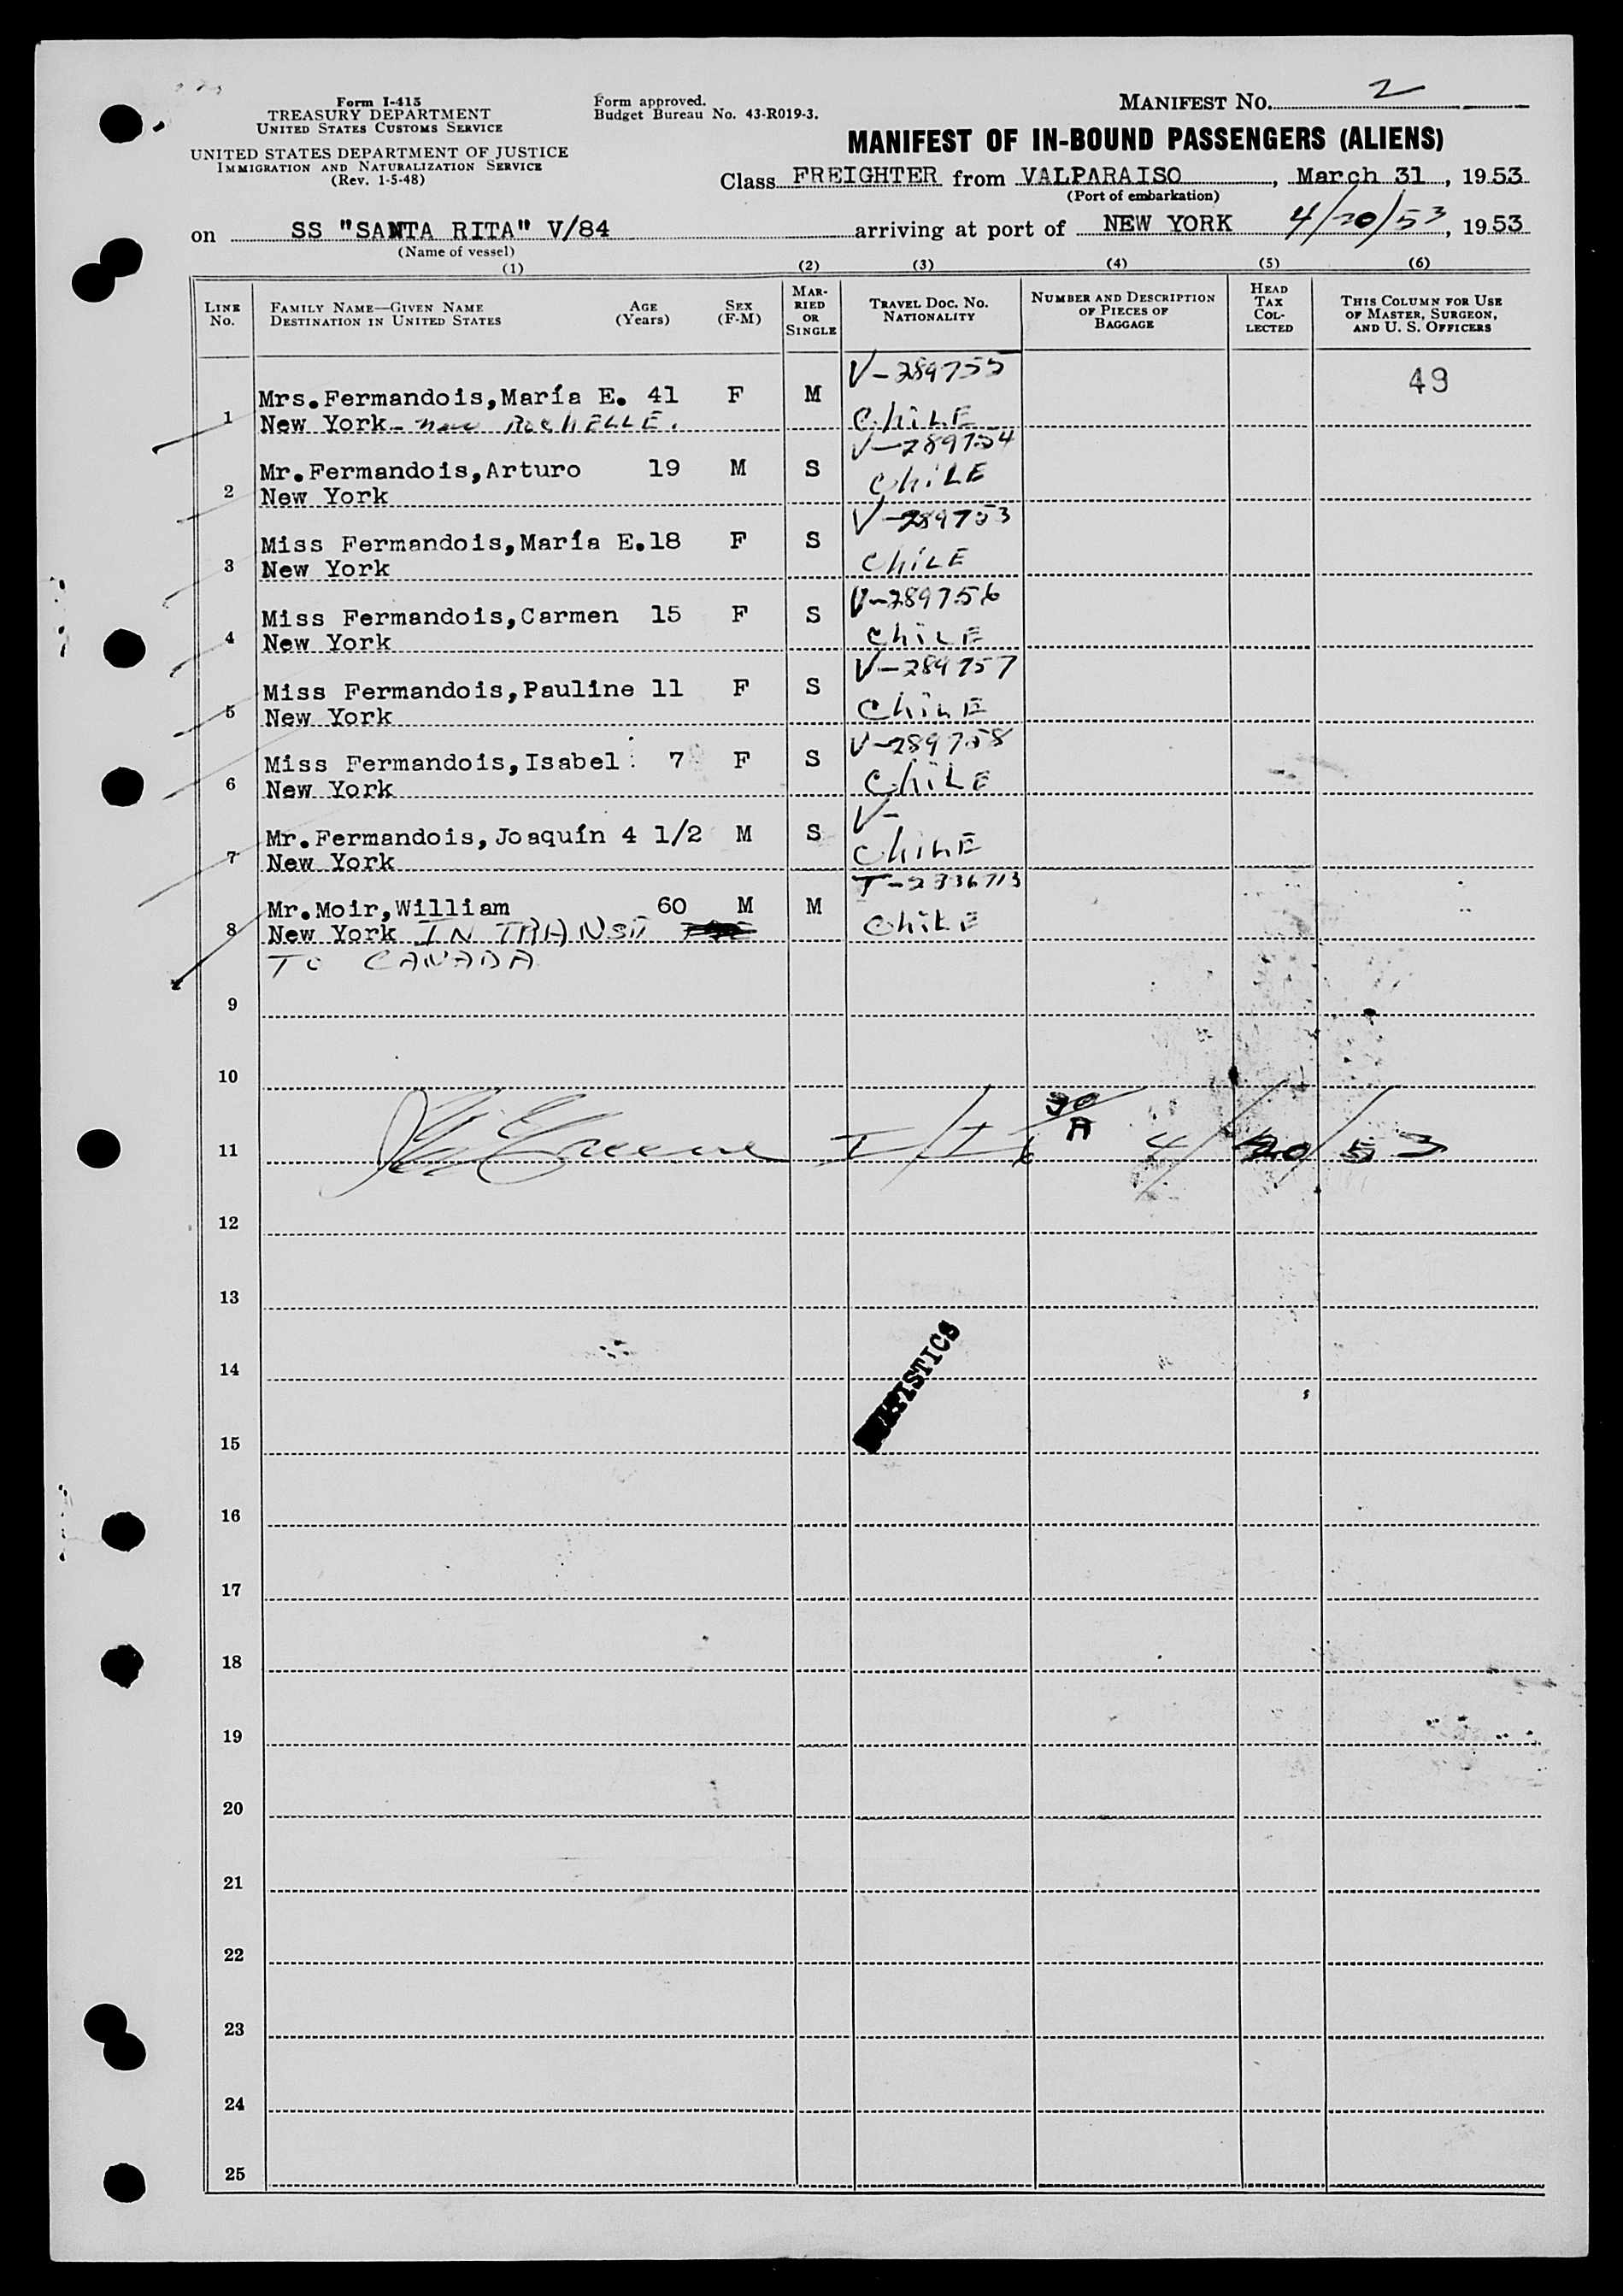 Form I-415
TREASURY DEPARTMENT
UNITED STATES CUSTOMS SERVICE
UNITED STATES DEPARTMENT OF JUSTICE
IMMIGRATION AND NATURALIZATION SERVICE
(Rev. 1-5-48)
Form approved.
Budget Bureau No. 43-R019-3.
MANIFEST No. 2
MANIFEST OF IN-BOUND PASSENGERS (ALIENS)
Class FREIGHTER from VALPARAISO, March 31, 1953
(Port of embarkation)
on SS "SANTA RITA" V/84 arriving at port of NEW YORK 4/20/53, 1953
(Name of vessel)
(1) (2) (3) (4) (5) (6)
LINE No. FAMILY NAME—GIVEN NAME DESTINATION IN UNITED STATES AGE (Years) SEX (F-M) MARRIED OR SINGLE TRAVEL DOC. NO. NATIONALITY NUMBER AND DESCRIPTION OF PIECES OF BAGGAGE HEAD TAX COLLECTED THIS COLUMN FOR USE OF MASTER, SURGEON, AND U. S. OFFICERS
V-289755 49
Mrs.Fermandois,María E. 41 F M
1 New York - new RocHELLE. ChiLE
V-289754
Mr.Fermandois,Arturo 19 M S ChiLE
2 New York
V-289753
Miss Fermandois,María E.18 F S
3 New York ChiLE
V-289756
Miss Fermandois,Carmen 15 F S
4 New York ChiLE
V-289757
Miss Fermandois,Pauline 11 F S
5 New York ChiLE
V-289758
Miss Fermandois,Isabel 7 F S
6 New York ChiLE
V-
Mr.Fermandois,Joaquín 4 1/2 M S
7 New York ChiLE
T-2336713
Mr.Moir,William 60 M M
8 New York IN TRANSIT ChiLE
TO CANADA
9
10
30/A
11 Greene I/I 4/20/53
12
13
14
15
16
17
18
19
20
21
22
23
24
25